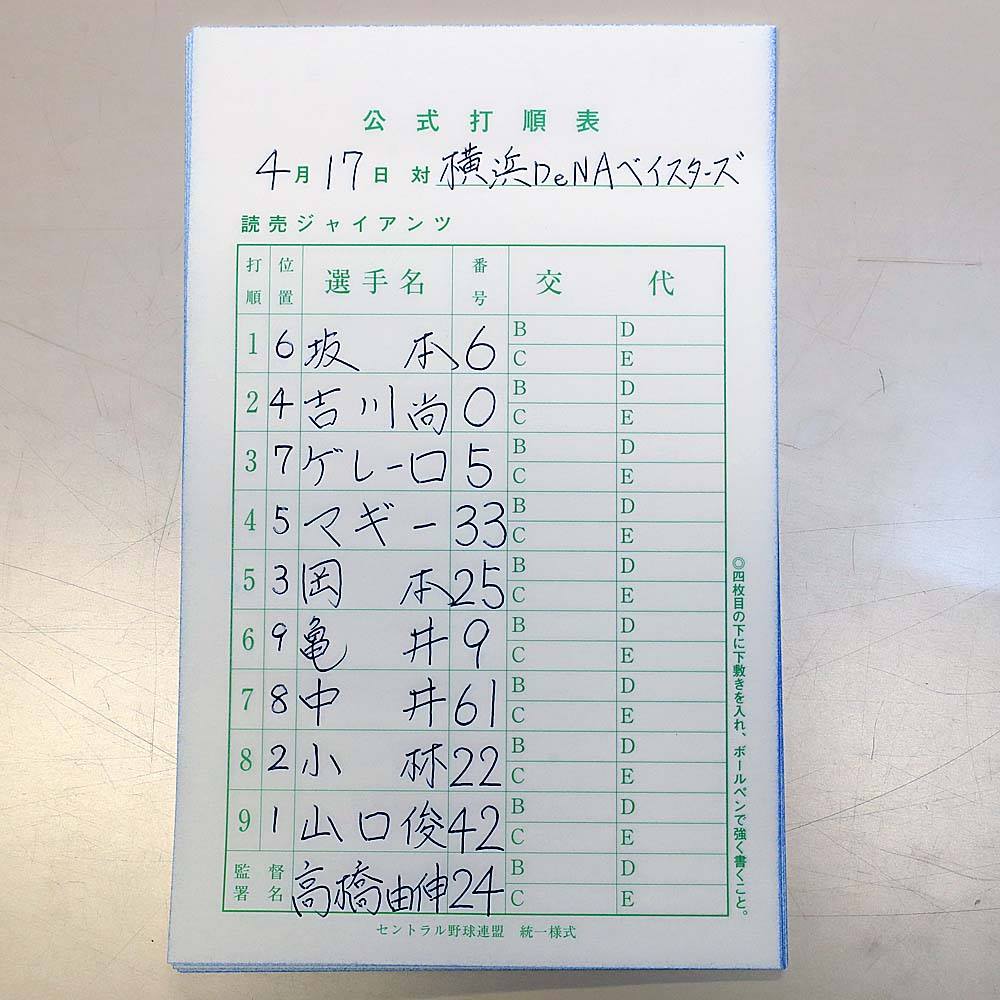 公式打順表
4月17日 対 横浜DeNAベイスターズ
読売ジャイアンツ
打順 位置 選手名 番号 交代
1 6 坂本 6 B D C E
2 4 吉川尚 0 B D C E
3 7 ゲレーロ 5 B D C E
4 5 マギー 33 B D C E
5 3 岡本 25 B D C E
6 9 亀井 9 B D C E
7 8 中井 61 B D C E
8 2 小林 22 B D C E
9 1 山口俊 42 B D C E
監督署名 高橋由伸 24 B D C E
セントラル野球連盟 統一様式
◎四枚目の下に下敷きを入れ、ボールペンで強く書くこと。